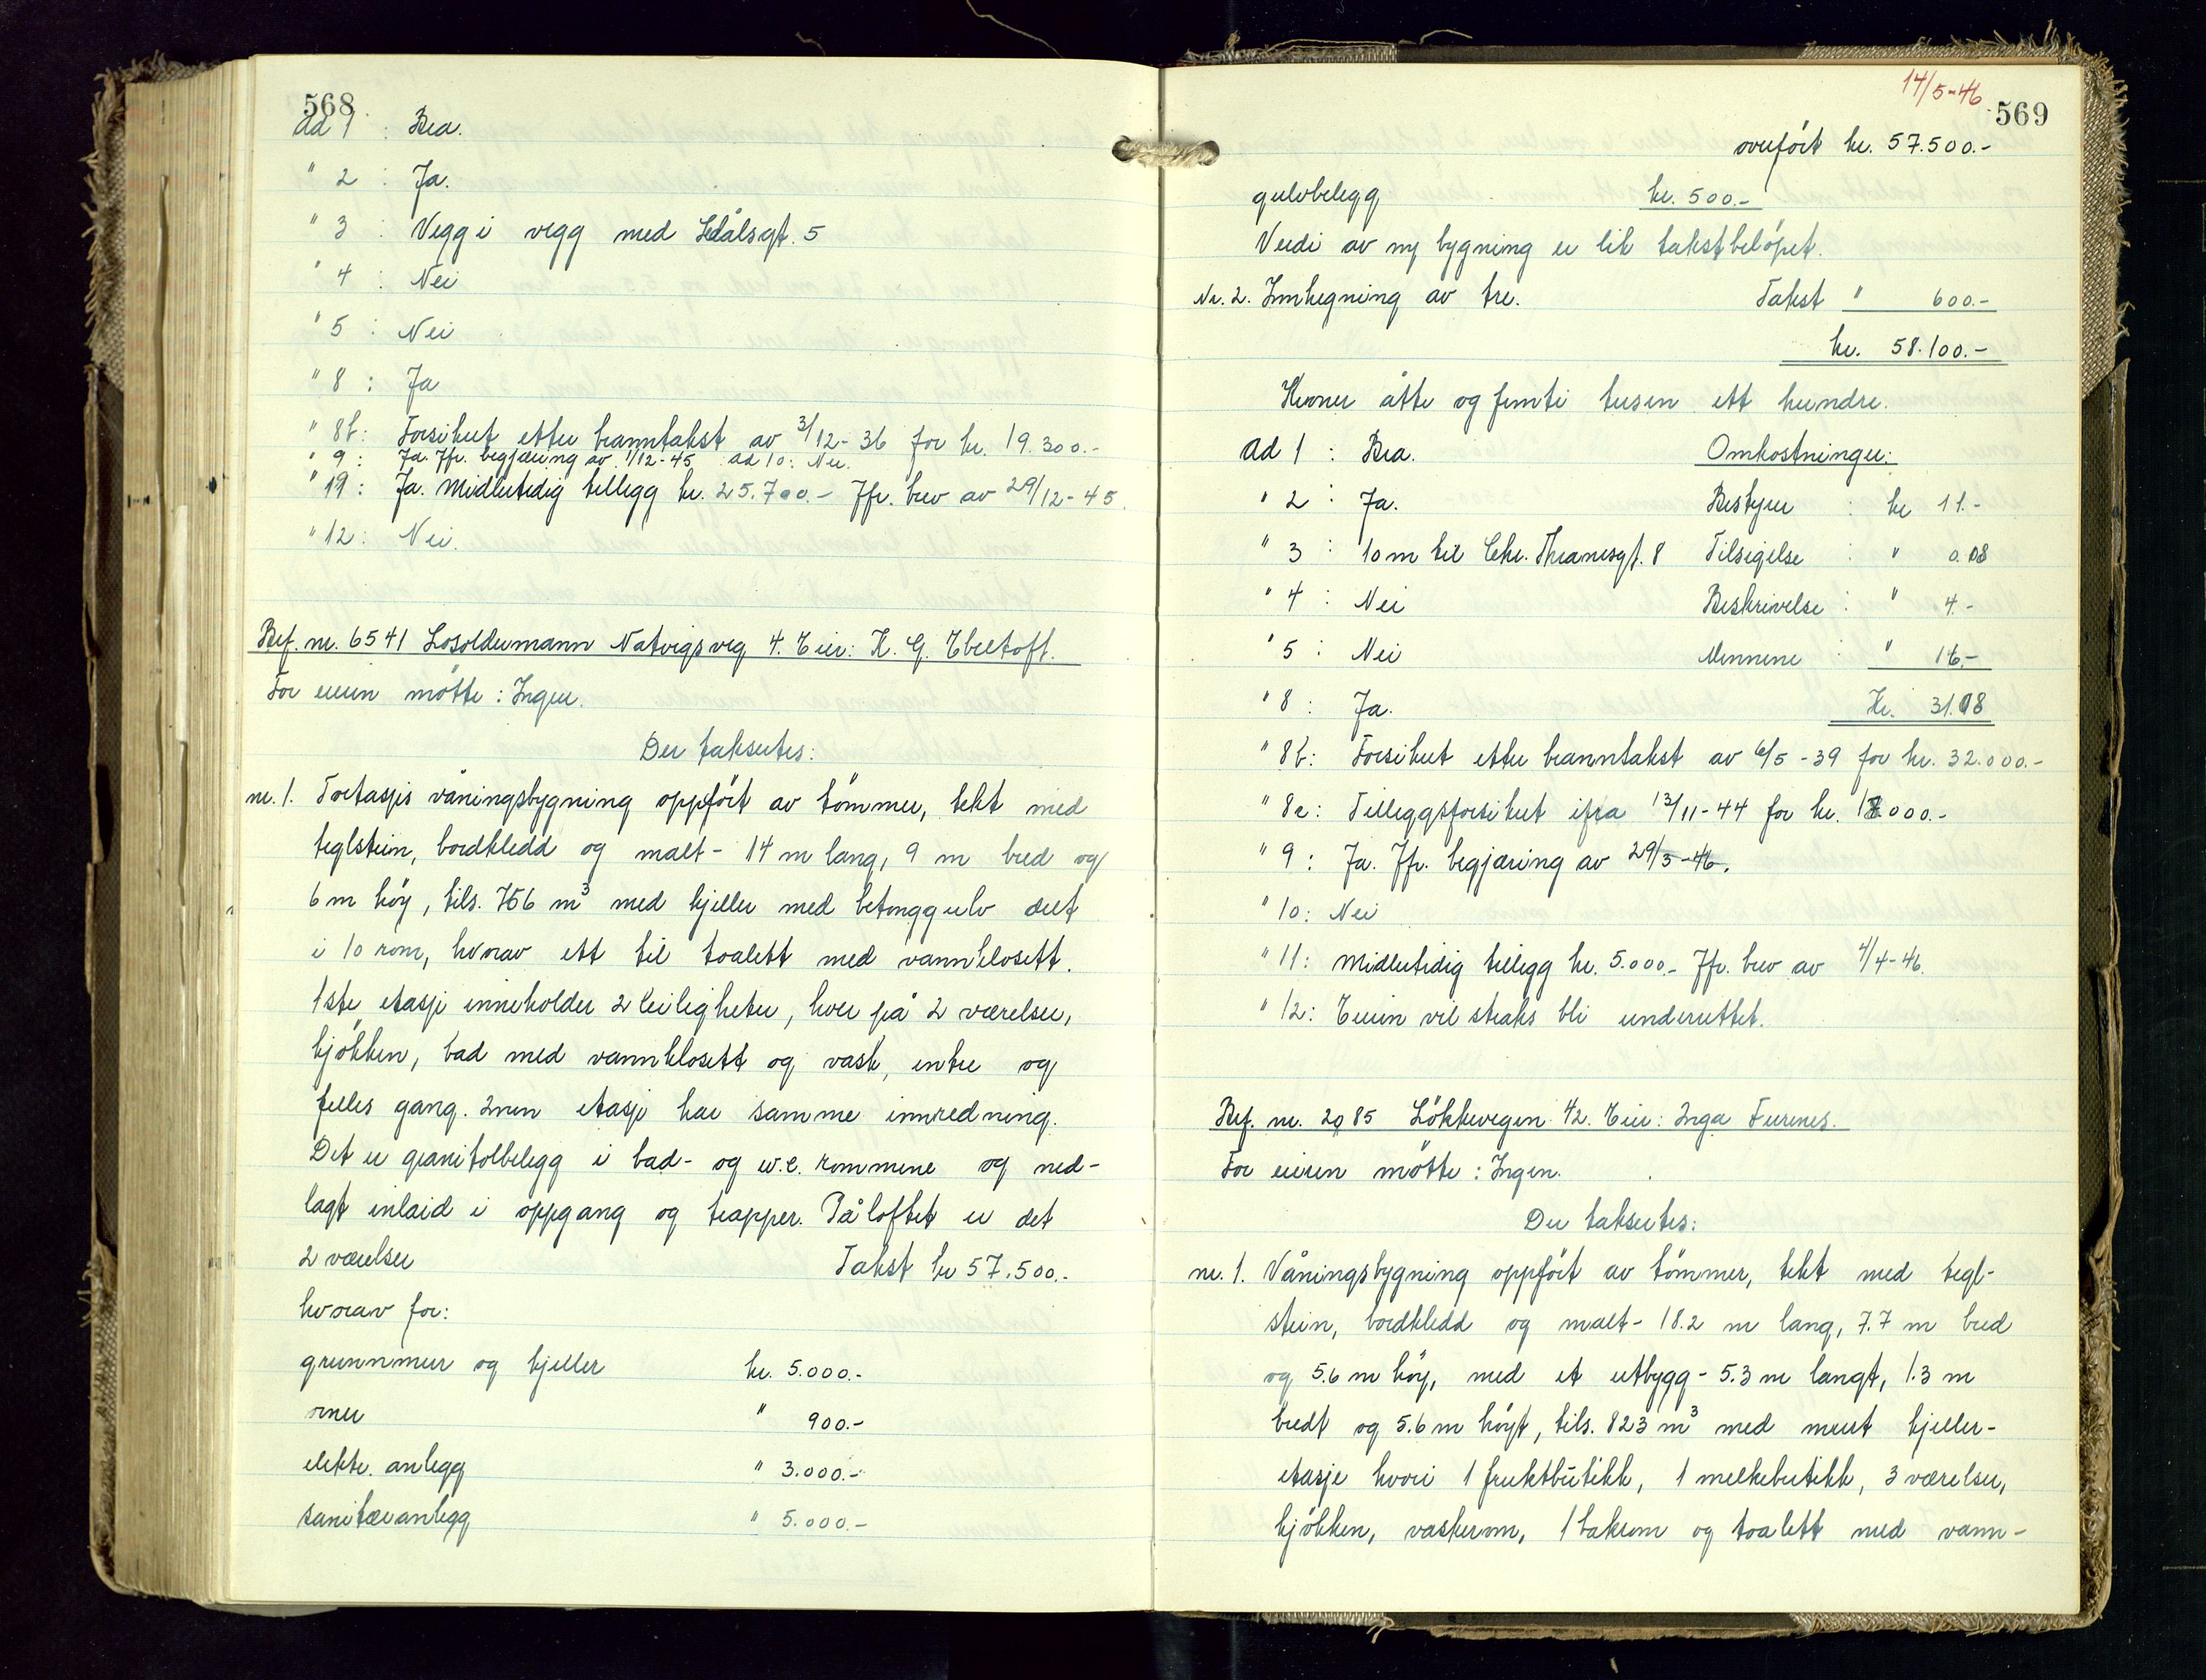 568
Ad 1 : Bra.
" 2 : Ja.
" 3 : Vegg i vegg med Ledålsgt. 5
" 4 : Nei
" 5 : Nei
" 8 : Ja
" 8b: Forsikret etter branntakst av 3/12-36 for kr. 19.300.-
" 9 : Ja. Jfr. begjæring av 1/12-45 ad 10: Nei.
" 19 : Ja. Midlertidig tillegg kr. 25.700.- Jfr. brev av 29/12-45.
" 12: Nei.
Bref. nr. 6541 Losoldermann Natvigsveg 4. Eier: K. G. Ebeltoft.
For eieren møtte : Ingen.
Der takseres:
nr. 1. Toetasjes våningsbygning oppført av tömmer, tekt med
teglstein, bordkledd og malt - 14 m lang, 9 m bred og
6 m höy, tils. 756 m³ med kjeller med betonggulv delt
i 10 rom, hvorav ett til toalett med vannklosett.
1ste etasje inneholder 2 leiligheter, hver på 2 værelser,
kjökken, bad med vannklosett og vask, entre og
felles gang. 2nen etasje har samme innredning.
Det er granitolbelegg i bad- og w.c. rommene og ned-
lagt inlaid i oppgang og trapper. På loftet er det
2 værelser Takst kr 57.500.-
hvorav for:
grunnmur og kjeller kr. 5.000.-
ovner " 900.-
elektr. anlegg " 3.000.-
sanitæranlegg " 5.000.-
14/5-46
569
overfört kr. 57.500.-
gulvbelegg kr. 500.-
Verdi av ny bygning er lik takstbelöpet.
Nr. 2. Innhegning av tre. Takst " 600.-
kr. 58.100.-
Kroner åtte og femti tusen ett hundre.
Ad 1 : Bra. Omkostninger:
" 2 : Ja. Bestyrer : kr 11.-
" 3 : 10 m til Chr. Thranesgt. 8 Tilsigelse : " 0.08
" 4 : Nei Beskrivelse : " 4.-
" 5 : Nei Mennene : " 16.-
" 8 : Ja. Kr. 31.08
" 8b: Forsikret etter branntakst av 6/5-39 for kr. 32.000.-
" 8c: Tilleggsforsikret ifra 13/11-44 for kr. 18.000.-
" 9 : Ja. Jfr. begjæring av 29/3-46.
" 10: Nei
" 11: Midlertidig tillegg kr. 5.000.- Jfr. brev av 4/4-46.
" 12: Eieren vil straks bli underrettet.
Bref. nr. 2085 Lökkevegen 42. Eier: Inga Furenes.
For eieren mötte : Ingen.
Der takseres:
nr. 1. Våningsbygning oppfört av tömmer, tekt med tegl-
stein, bordkledd og malt - 18.2 m lang, 7.7 m bred
og 5.6 m höy, med et utbygg - 5.3 m langt, 1.3 m
bredt og 5.6 m höyt, tils. 823 m³ med murt kjeller-
etasje hvori 1 fruktbutikk, 1 melkebutikk, 3 værelser,
kjökken, vaskerom, 1 bakrom og toalett med vann-